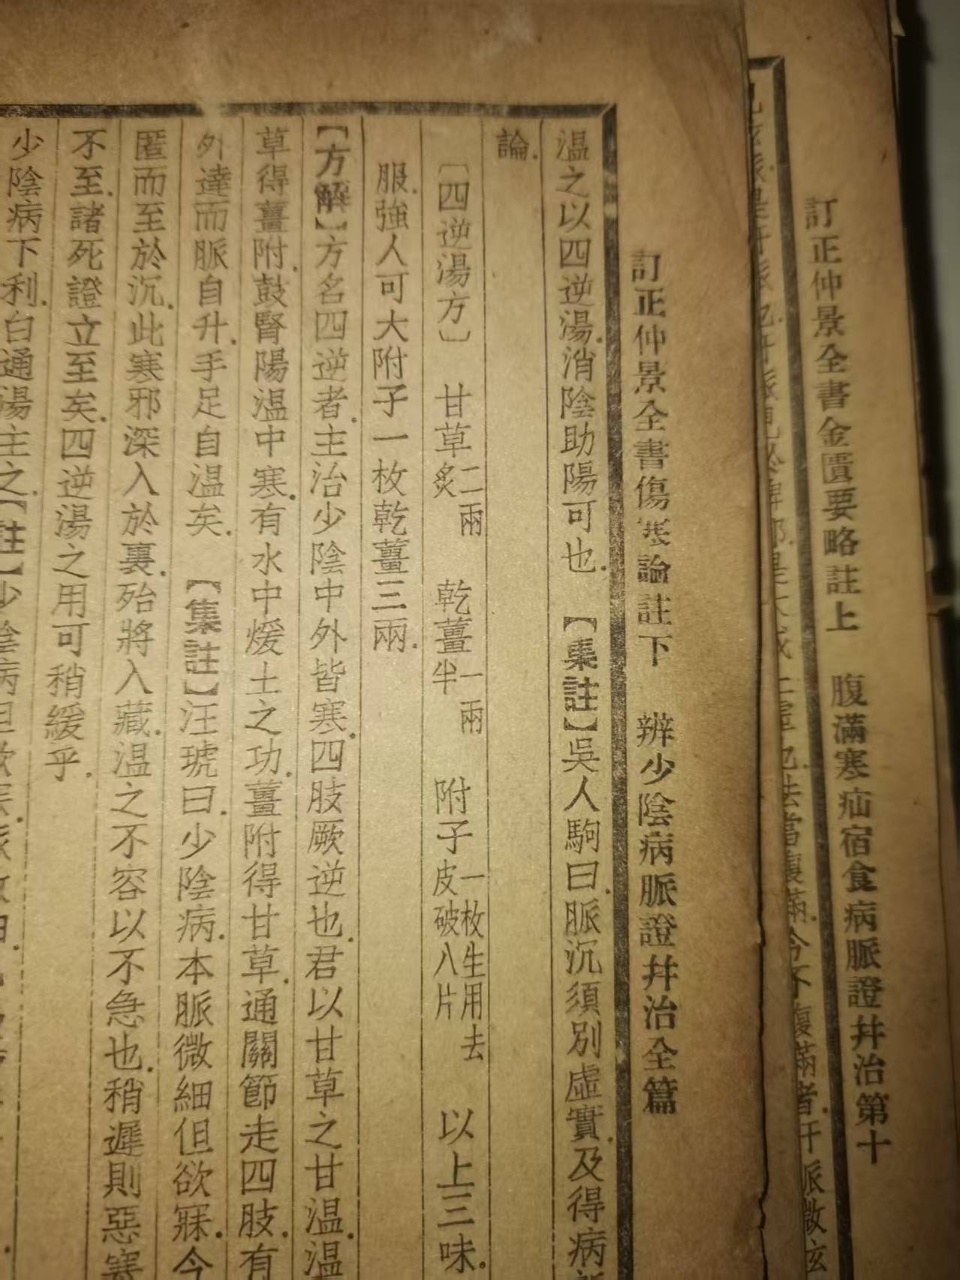 訂正仲景全書金匱要略註上 腹滿寒疝宿食病脈證幷治第十
訂正仲景全書傷寒論註下 辨少陰病脈證幷治全篇
溫之以四逆湯消陰助陽可也．【集註】吳人駒曰．脈沉須別虛實．及得病
論．
〔四逆湯方〕 甘草炙二兩 乾薑一兩半 附子一枚生用去皮破八片 以上三味．
服．強人可大附子一枚乾薑三兩．
【方解】方名四逆者．主治少陰中外皆寒．四肢厥逆也．君以甘草之甘溫．溫
草得薑附．鼓腎陽溫中寒．有水中煖土之功．薑附得甘草．通關節走四肢．有
外達而脈自升．手足自溫矣．【集註】汪琥曰．少陰病．本脈微細但欲寐．今
匿而至於沉．此寒邪深入於裏．殆將入藏．溫之不容以不急也．稍遲則惡寒
不至．諸死證立至矣．四逆湯之用可稍緩乎．
少陰病下利．白通湯主之．【註】少陰病但欲